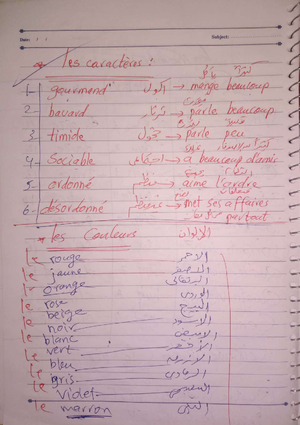 Date: / /
Subject:
* les caractères :
1- gourmand أكول → mange beaucoup
2- bavard ثرثار → parle beaucoup
3- timide خجول → parle peu
4- Sociable اجتماعي → a beaucoup d'amis
5- ordonné منظم → aime l'ordre
6- désordonné → met ses affaires
partout
* les Couleurs الألوان
le rouge الأحمر
le jaune الأصفر
le orange البرتقالي
le rose الوردي
le beige البيج
le noir الأسود
le blanc الأبيض
le vert الأخضر
le bleu الأزرق
le gris الرمادي
le violet البنفسجي
le marron البني